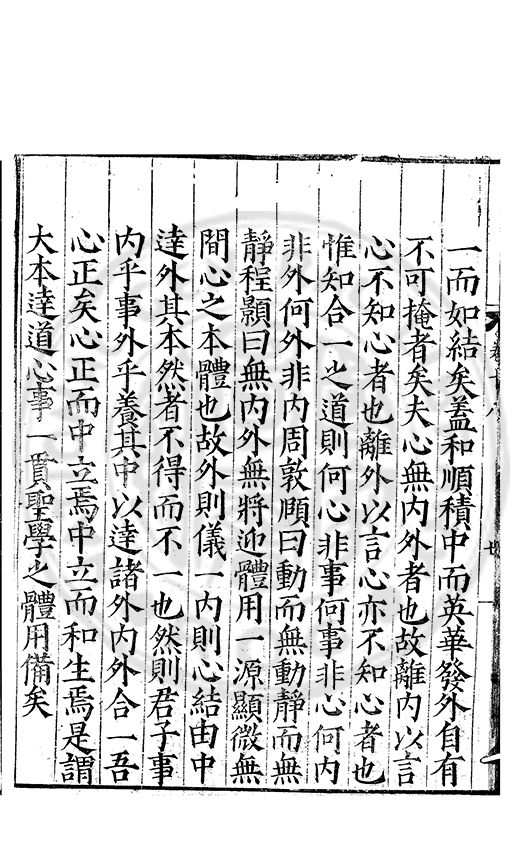 一而如結矣蓋和順積中而英華發外自有
不可掩者矣夫心無內外者也故離内以言
心不知心者也離外以言心亦不知心者也
惟知合一之道則何心非事何事非心何内
非外何外非内周敦頤曰動而無動靜而無
靜程顥曰無内外無將迎體用一源顯微無
間心之本體也故外則儀一内則心結由中
達外其本然者不得而不一也然則君子事
内乎事外乎養其中以達諸外内外合一吾
心正矣心正而中立焉中立而和生焉是謂
大本達道心事一貫聖學之體用備矣